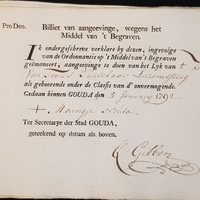 Pro Deo.
Billiet van aangeevinge, wegens het
Middel van 't Begraven.
IK ondergeschreve verklare by dezen, ingevolge
van de Ordonnantie op 't Middel van 't Begraven
geëmaneert, aangeevinge te doen van het Lyk van
als gehoorende onder de Classis van d' onvermogende.
Gedaan binnen GOUDA, den 5 January 1792
Ter Secretarye der Stad GOUDA,
geteekend op datum als boven.